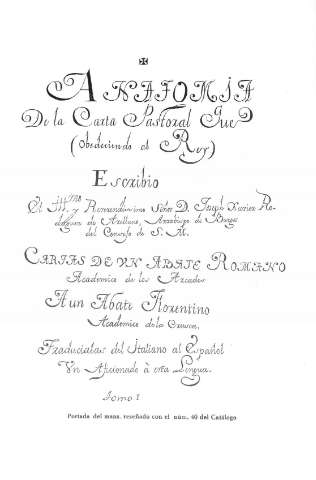 ANATOMIA
De la Carta Pastoral Que
(obedeciendo al Rey)
Escribio
El Ill.mo y Reverendisimo Señor D. Joseph Xavier Ro-
driguez de Arellano, Arzobispo de Burgos
del Consejo de S. M.
CARTAS DE UN ABATE ROMANO
Academico de los Arcades
A un Abate Florentino
Academico de la Crusca.
Traducidas del Italiano al Español
Un Aficionado à esta Lengua.
Tomo I
Portada del manu. reseñado con el núm. 40 del Catálogo